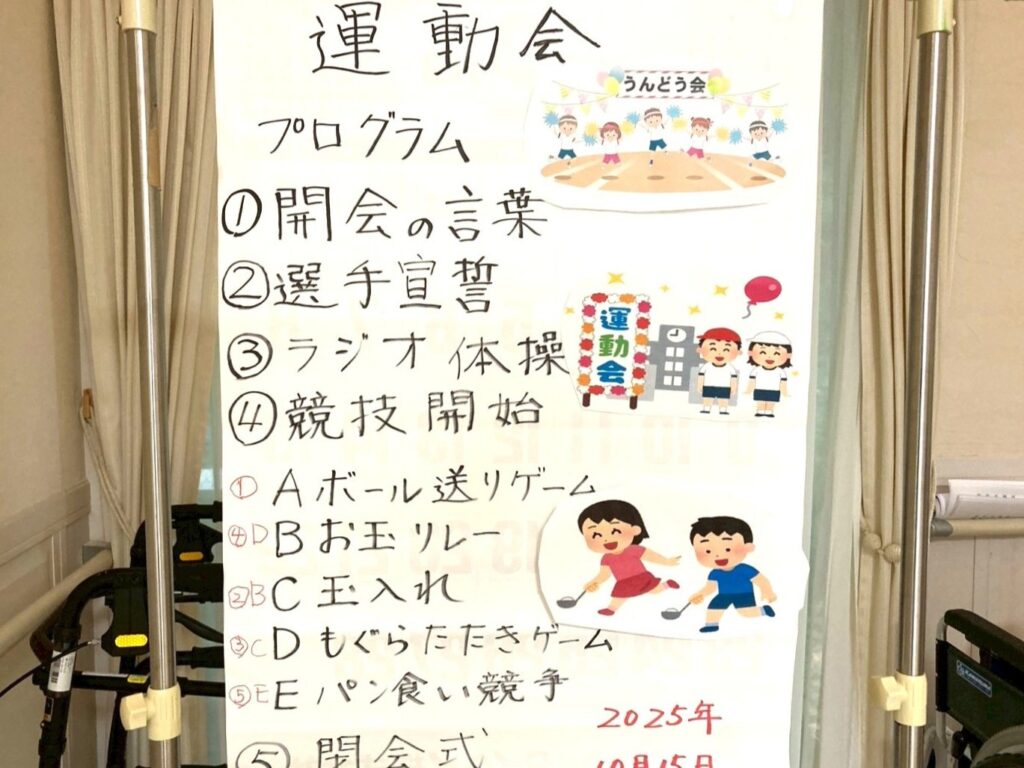 運動会
うんどう会
プログラム
①開会の言葉
②選手宣誓
運動会
③ラジオ体操
④競技開始
① Aボール送りゲーム
④D Bお玉リレー
②B C玉入れ
③C Dもぐらたたきゲーム
⑤E Eパン食い競争
2025年
⑤閉会式
10月15日